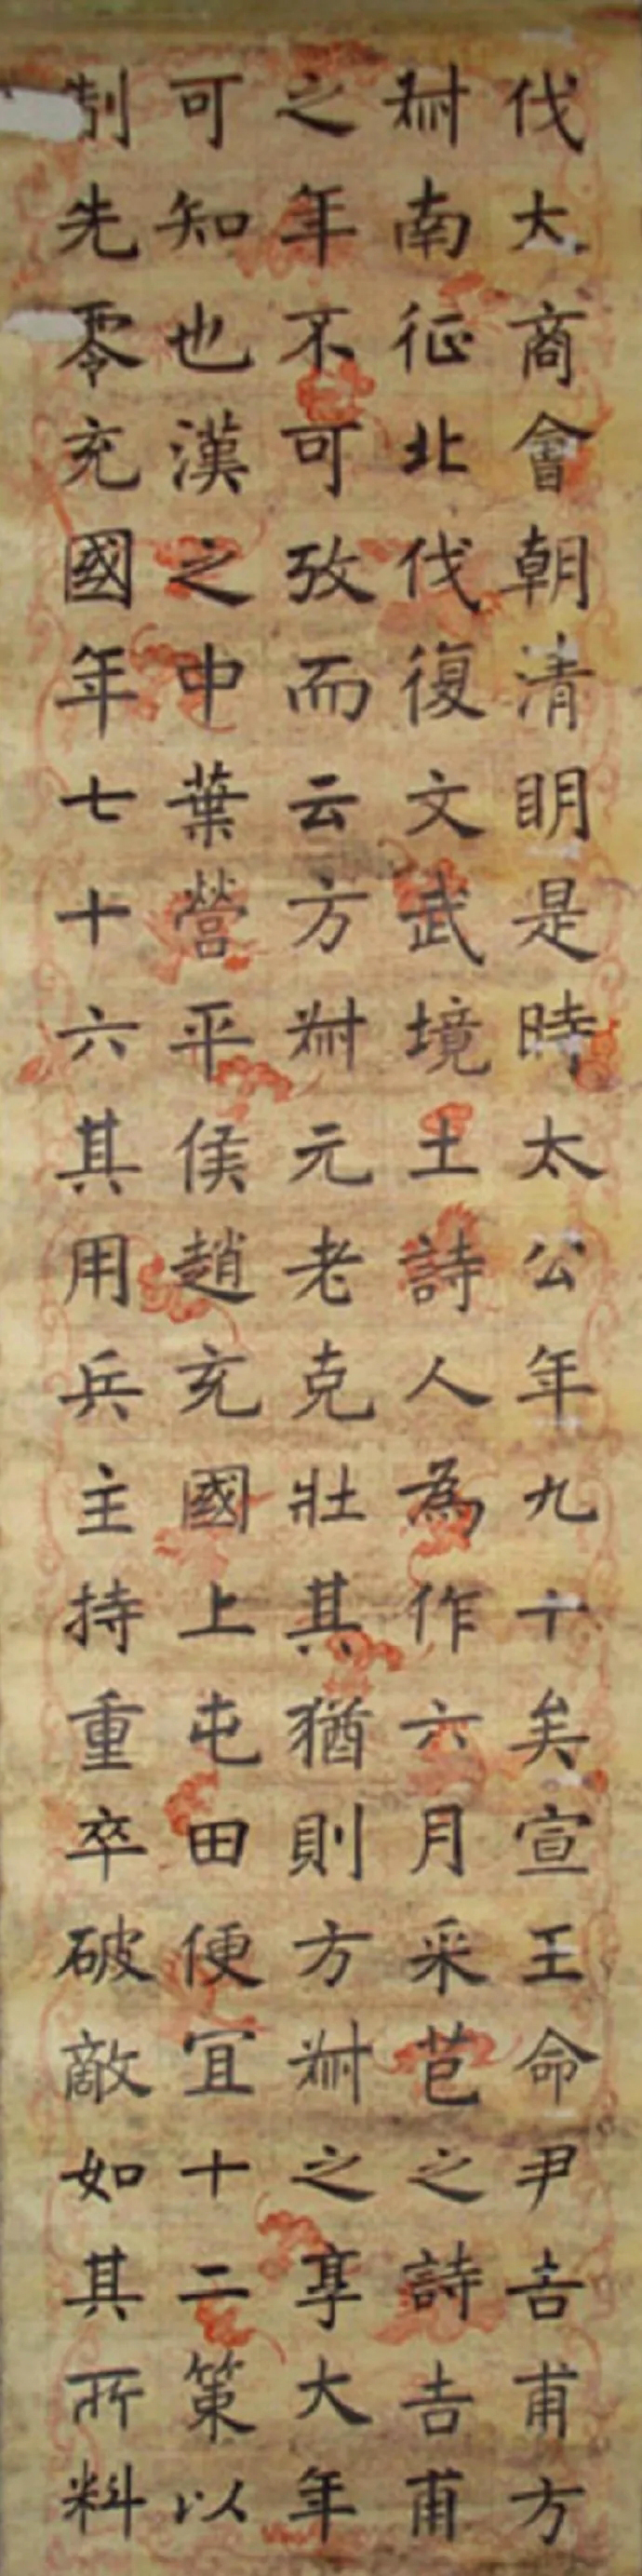 伐大商會朝清明是時太公年九十矣宣王命尹吉甫方
叔南征北伐復文武境土詩人為作六月采芑之詩吉甫
之年不可攷而云方叔元老克壯其猶則方叔之享大年
可知也漢之中葉營平侯趙充國上屯田便宜十二策以
制先零充國年七十六其用兵主持重卒破敵如其所料